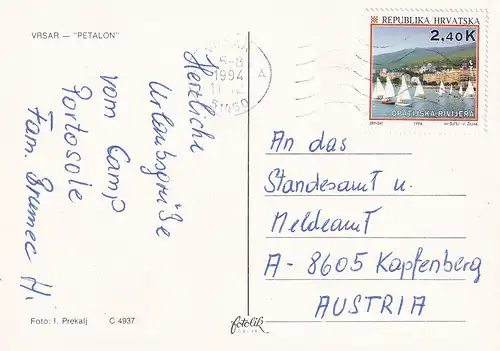 VRSAR — "PETALON"
Herzliche
Urlaubsgrüße
vom Camp
Portosole
Fam. Brumec H.
Foto: I. Prekalj C 4937
fotolik
1994
A
REPUBLIKA HRVATSKA
2,40K
OPATIJSKA RIVIJERA
1994.
An das
Standesamt u.
Meldeamt
A - 8605 Kapfenberg
AUSTRIA